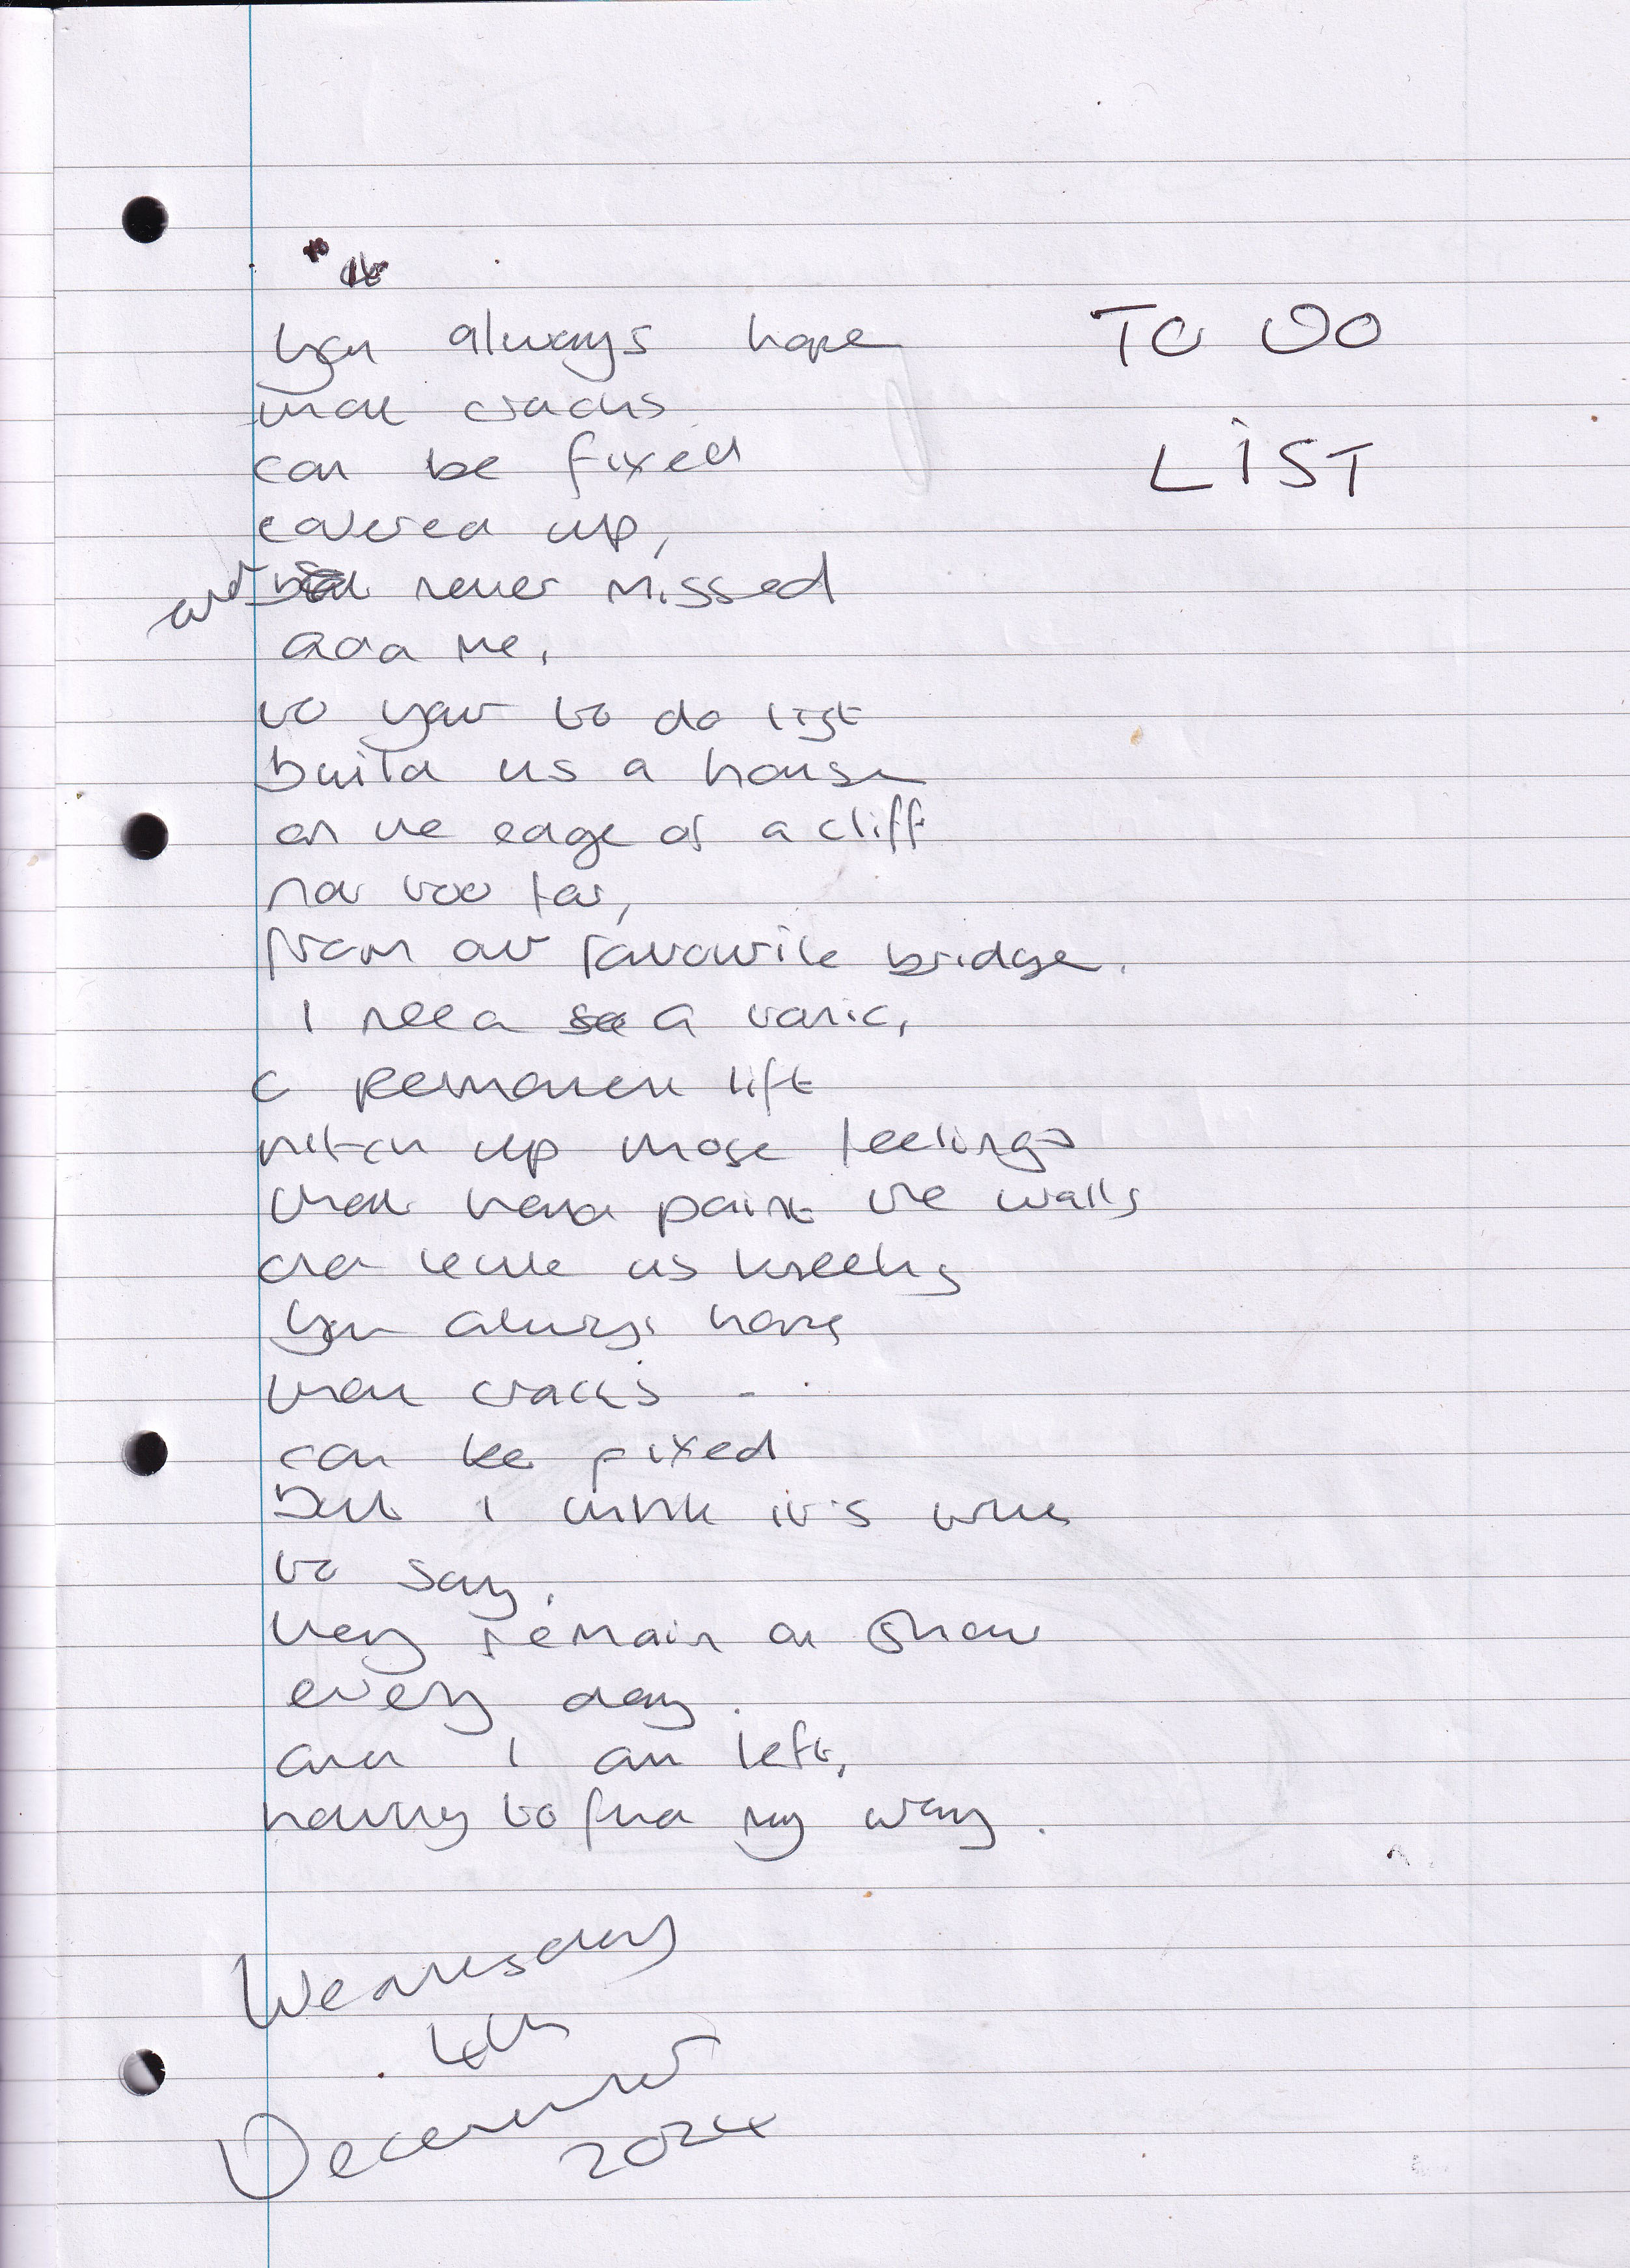 TO DO
LIST
You always hope
that cracks
can be fixed
covered up,
and never missed
add me,
to your to do list
build us a house
on the edge of a cliff
not too far,
from our favourite bridge.
I need a tonic,
a permanent lift
pitch up those feelings
that hand paint the walls
and leave us
You always hope
that cracks
can be fixed
but I think it's
to say,
they remain on show
every day.
and I am left,
having to find my way.
Wednesday
4th
December
2024